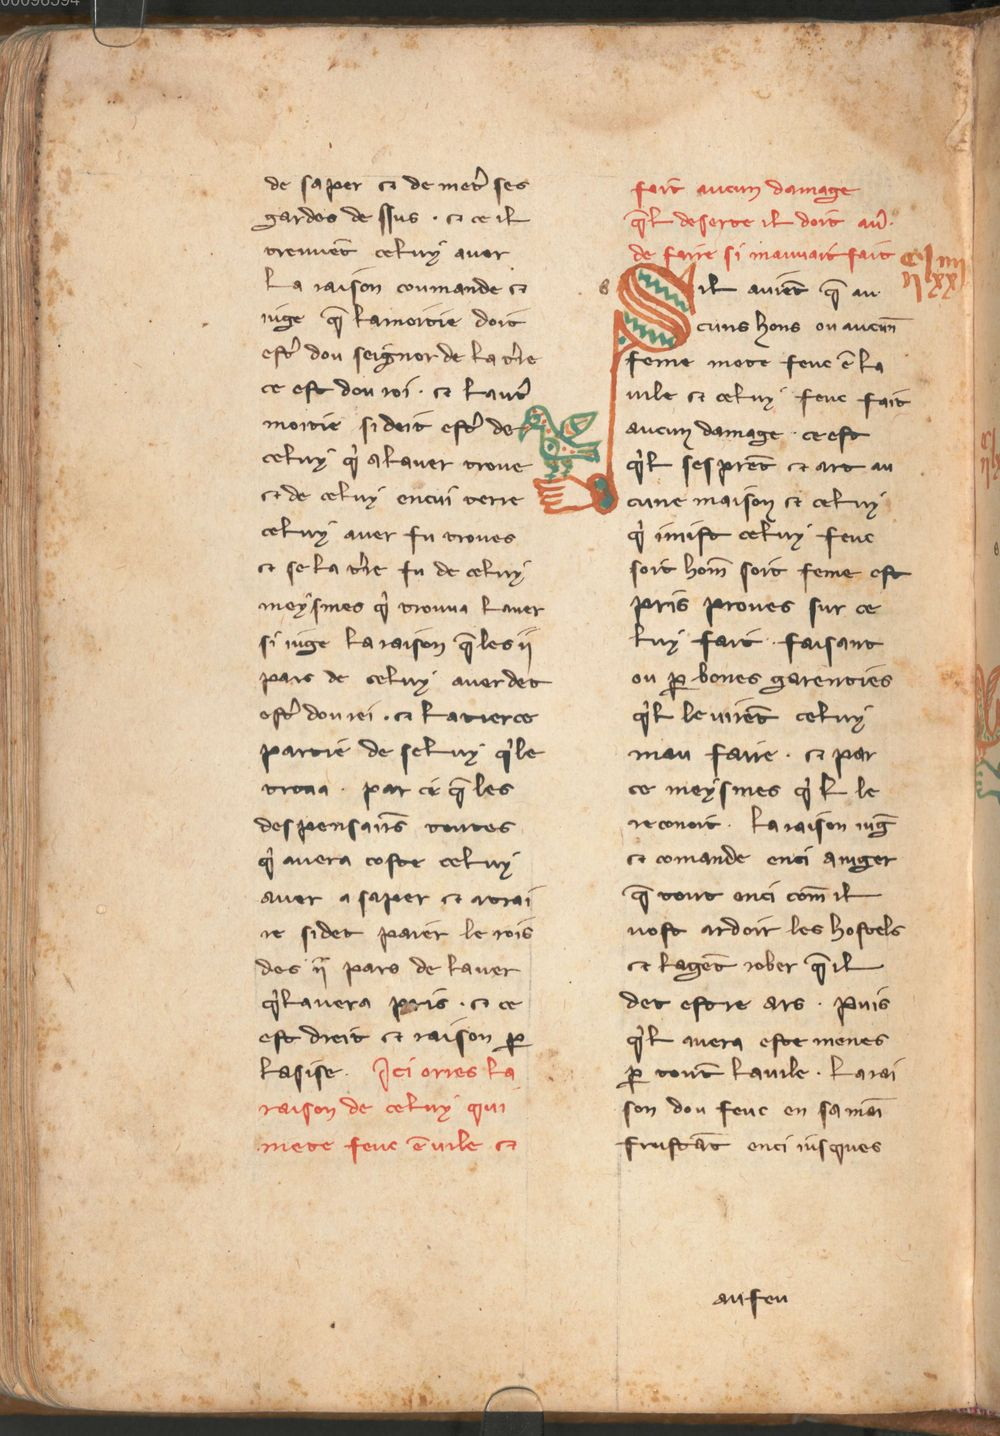 de saper et de metr̃ ses
gardes de ssus · et ce il
treuuẽt celuy auer
la raison coumande et
iuge q̃ la moitie doit
estr̃ dou seignor de la tr̃e
ce est dou roi · et lautr̃
moitie si doit estr̃ de
celuy qͥ a lauer troue
et de celuy en cui terre
celuy auer fu troues
et se la tr̃e fu de celuy
meysmes qͥ trouua lauer
si iuge la raison q̃ les ii
pars de celuy auer det
estr̃ dou rei · et la tierce
partie de seluy qͥ le
troua · par ci q̃ les
despensãns toutes
qͥ auera coste celuy
auer a saper et a trai
re si det paier le rois
des ii pars de lauer
qͥl auera pris · et ce
est dreit et raison ꝑ
lasise · Ici orres la
raison de celuy qui
mete feuc ẽ uile et
fait aucun damage
q̃l deserte il doit auͥ
de faire si mauuait fait
Sil auiẽt q̃ au
cuns hons ou aucun̄
feme mete feuc ẽ la
uile et celuy feuc fait
aucun damage · ce est
qͥl sesprẽt et art au
cune maison et celuy
qͥ i mist celuy feuc
soit hom̃ soit feme est
pris proues sur ce
luy fait · faisant
ou ꝑ bones garenties
qͥl le uirẽt celuy
mau faire · et par
ce meysmes qͥl le
reconoit · la raison iug̃
et comande enci a iuger
q̃ tout enci com̃ il
uost ardoir les hostels
et lagẽt rober q̃ il
det estre ars · Puis
qͥl auera este menes
ꝑ tout la uile · la rai
son dou feuc en sa mãi
frustãt enci iusques
au feu